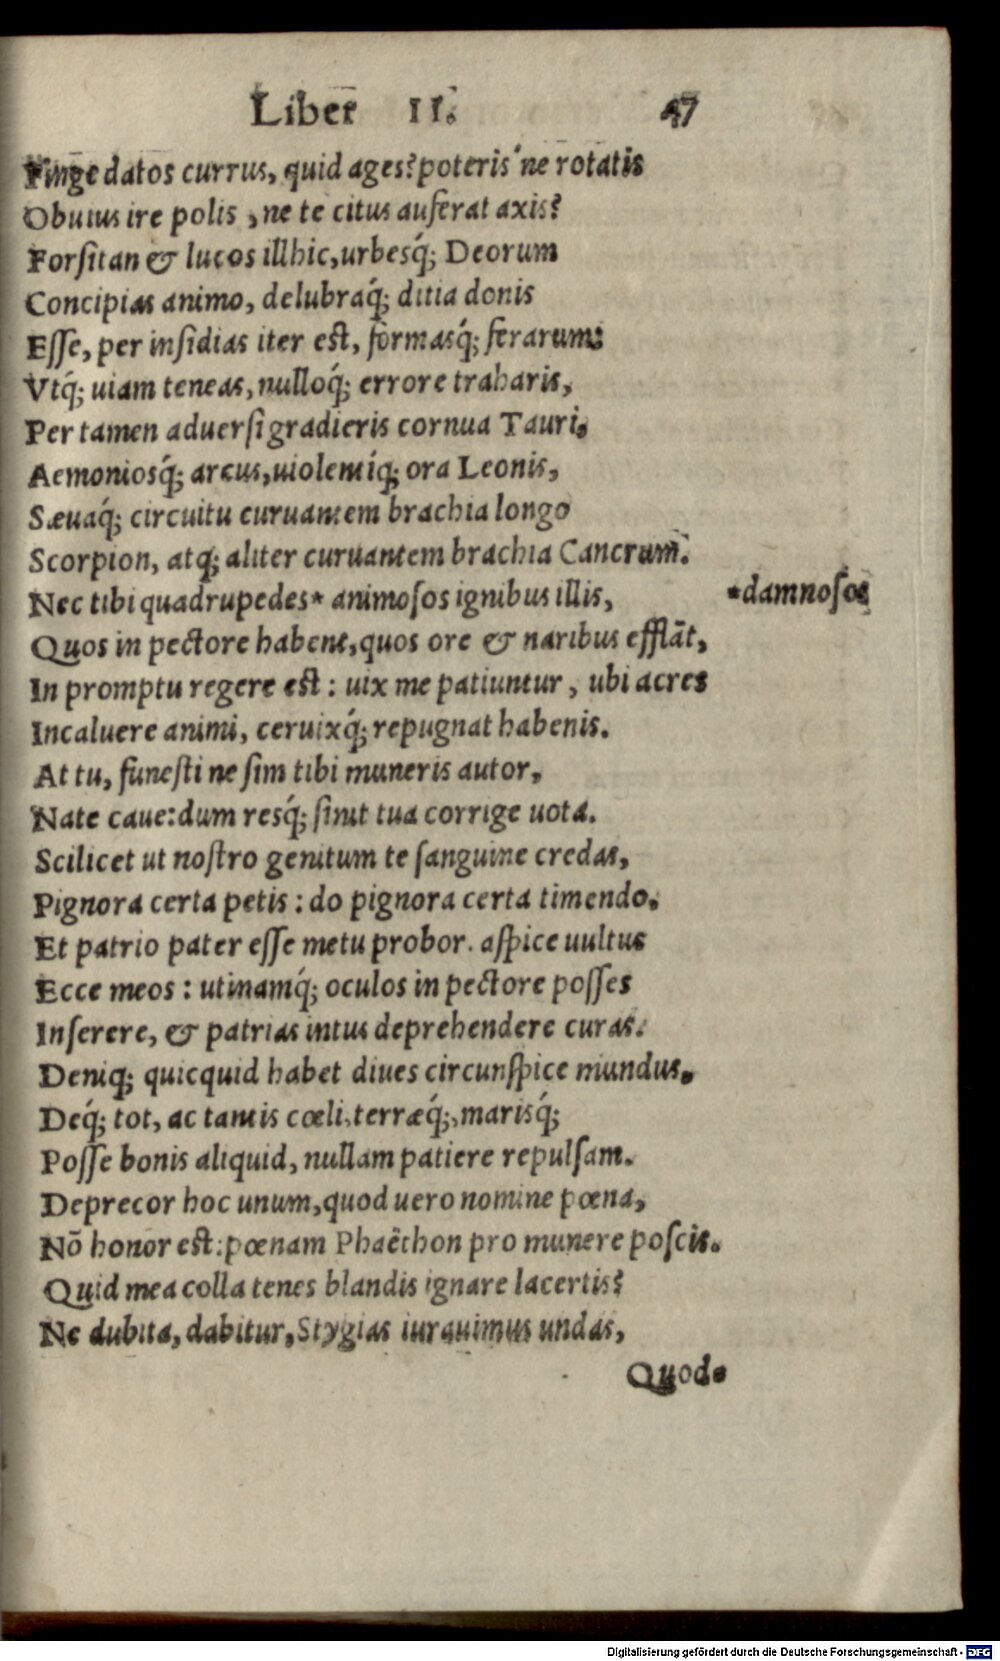 Liber II. 47
Finge datos currus, quid ages? poteris'ne rotatis
Obuius ire polis, ne te citus auferat axis?
Forsitan & lucos illhic, urbesq́; Deorum
Concipias animo, delubraq́; ditia donis
Esse, per insidias iter est, formasq́; ferarum:
Vtq́; uiam teneas, nulloq́; errore traharis,
Per tamen aduersi gradieris cornua Tauri,
Aemoniosq́; arcus, uiolentiq́; ora Leonis,
Sæuaq́; circuitu curuantem brachia longo
Scorpion, atq; aliter curuantem brachia Cancrum.
Nec tibi quadrupedes* animosos ignibus illis, *damnosos
Quos in pectore habent, quos ore & naribus efflāt,
In promptu regere est: uix me patiuntur, ubi acres
Incaluere animi, ceruixq́; repugnat habenis.
At tu, funesti ne sim tibi muneris autor,
Nate caue: dum resq́; sinit tua corrige uota.
Scilicet ut nostro genitum te sanguine credas,
Pignora certa petis: do pignora certa timendo.
Et patrio pater esse metu probor. aspice uultus
Ecce meos: utinamq́; oculos in pectore posses
Inserere, & patrias intus deprehendere curas.
Deniq; quicquid habet diues circunspice mundus,
Deq́; tot, ac tantis cœli, terræq́;, marisq́;
Posse bonis aliquid, nullam patiere repulsam.
Deprecor hoc unum, quod uero nomine pœna,
Nō honor est: pœnam Phaëthon pro munere poscis.
Quid mea colla tenes blandis ignare lacertis?
Ne dubita, dabitur, Stygias iurauimus undas,
Quod-
Digitalisierung gefördert durch die Deutsche Forschungsgemeinschaft - DFG